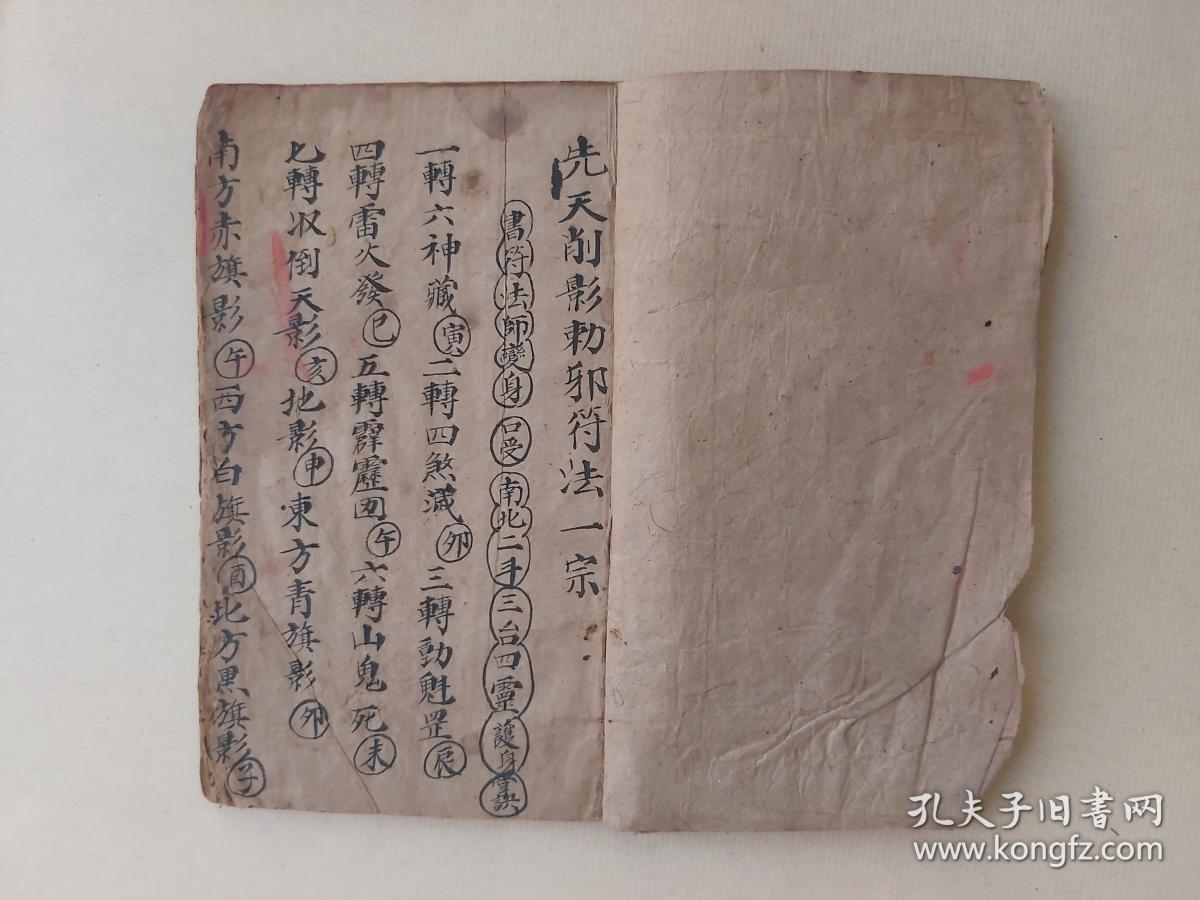 先天削影勅邪符法一宗
書符法師變身口受南北二斗三台四靈護身訣
一轉六神藏寅二轉四煞滅卯三轉動魁罡辰
四轉雷火發巳五轉霹靂囬午六轉山鬼死未
七轉収倒天影亥地影申東方青旗影卯
南方赤旗影午西方白旗影酉北方黒旗影子
孔夫子旧书网
www.kongfz.com